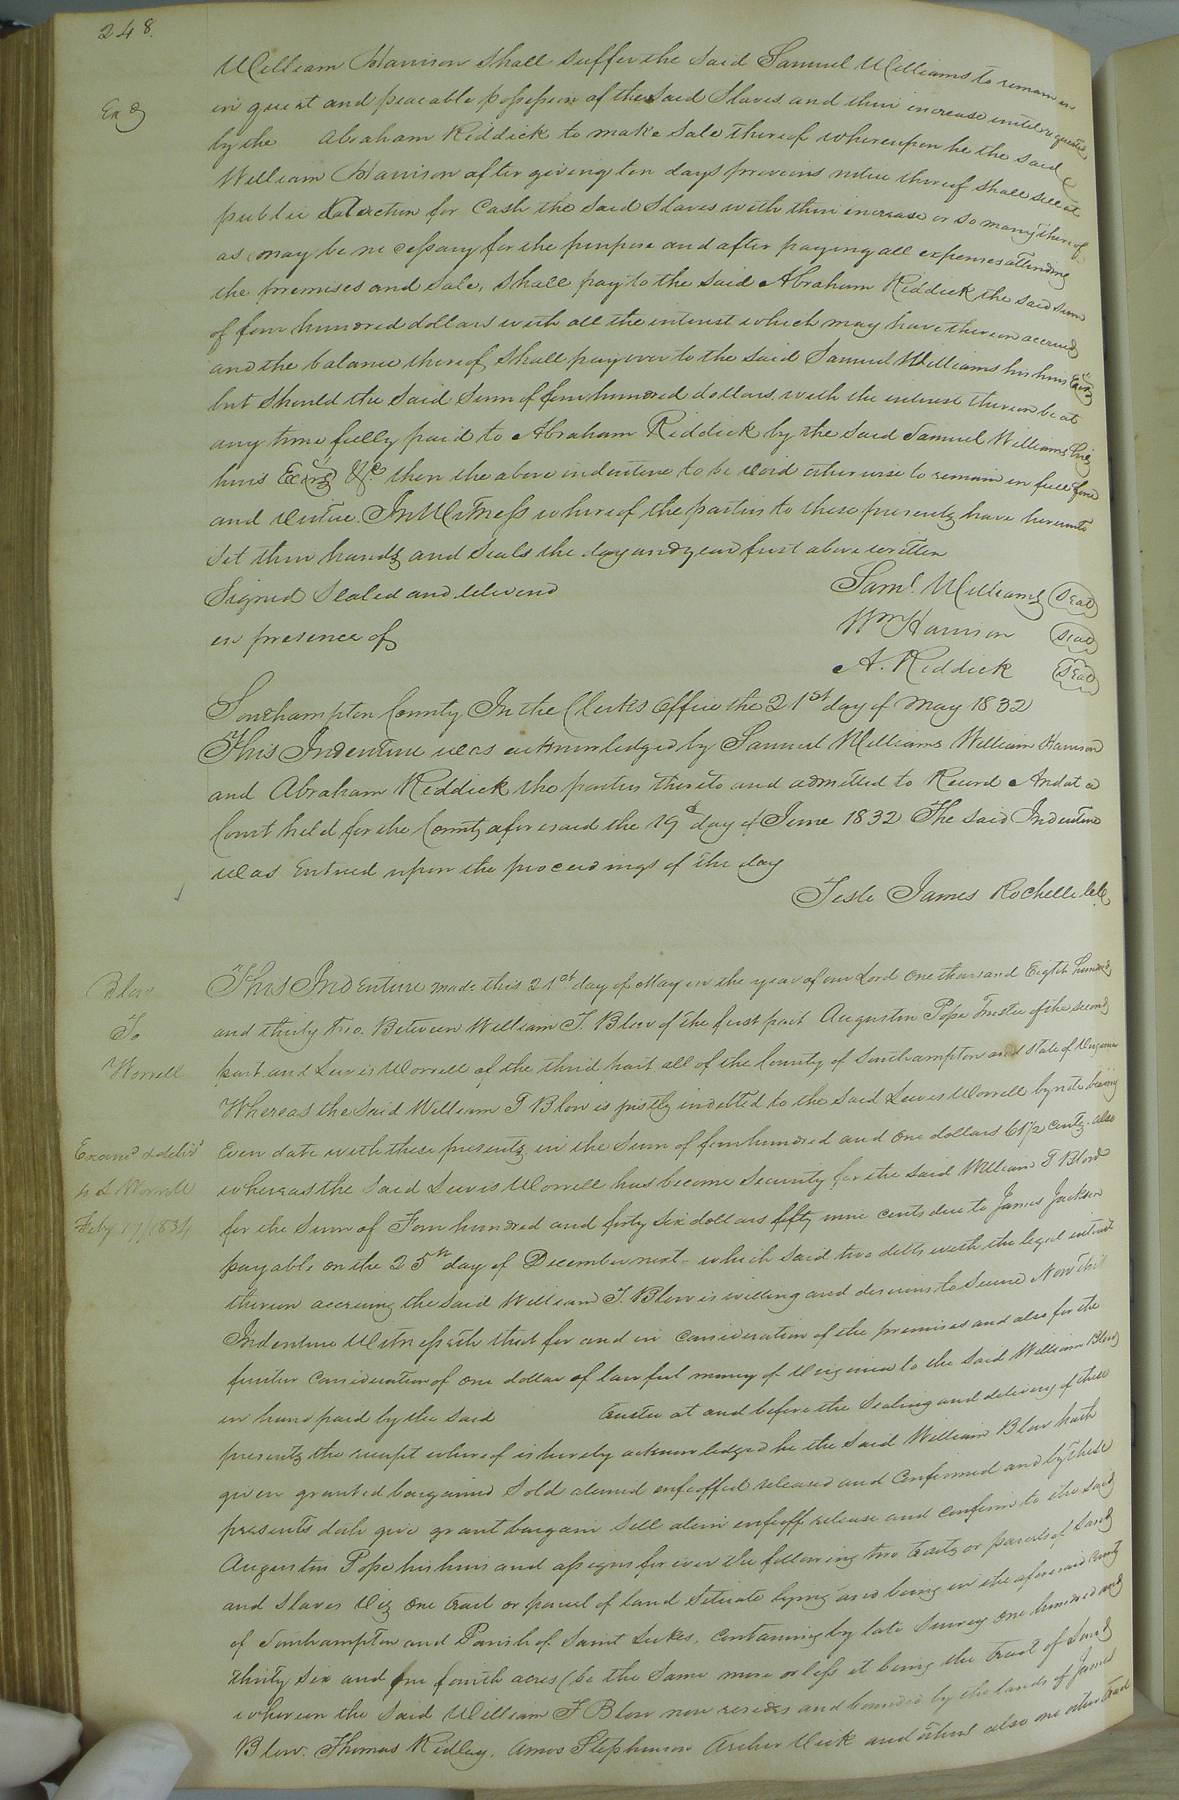 248.
Exd
William Harrison shall suffer the said Samuel Williams to remain in
in quiet and peacable possession of the said Slaves and thier increase until requested
by the Abraham Riddick to make sale thereof whereupon he the said
William Harrison after giving ten days previous notice thereof shall sell at
public Auction for Cash the said Slaves with thier increase or so many thereof
as may be necessary for the purpose and after paying all expenses attending
the premises and sale, shall pay to the said Abraham Riddick the said sum
of four hundred dollars with all the interest which may have thereon accrued
and the balance thereof shall pay over to the said Samuel Williams his heirs
but should the said Sum of four hundred dollars with the interest thereon be at
any time fully paid to Abraham Riddick by the said Samuel Williams his
heirs Exors &c then the above indenture to be void otherwise to remain in full force
and virtue. In Witness whereof the parties to these presents have hereunto
set thier hands and seals the day and year first above written
Signed Sealed and deliverd
in presence of
Saml. Williams Seal
Wm Harrison Seal
A. Riddick Seal
Southampton County In the Clerks Office the 21st day of May 1832
This Indenture was acknowledged by Samuel Williams William Harrison
and Abraham Riddick the parties thereto and admitted to Record And at a
Court held for the County aforesaid the 19th day of June 1832 The said Indenture
was Entered upon the proceedings of the day
Teste James Rochelle
Blow
To
Worrell
Examd & delivd
to L Worrell
Feby 17/1834
This Indenture made this 21st day of May in the year of our Lord One thousand Eight hundred
and thirty two. Between William T. Blow of the first part Augustin Pope Trustee of the second
part and Lewis Worrell of the third part all of the County of Southampton and State of Virginia
Whereas the said William T Blow is justly indebted to the said Lewis Worrell by note bearing
Even date with these presents in the Sum of four hundred and one dollars 61 1/2 cents. also
whereas the said Lewis Worrell has become Security for the said William T Blow
for the Sum of Four hundred and forty six dollars fifty nine cents due to James Jackson
payable on the 25th day of December next which said two debts with the legal interest
thereon accruing the said William T. Blow is willing and desirous to Secure Now this
Indenture Witnesseth that for and in Consideration of the premises and also for the
further Consideration of one dollar of lawful money of Virginia to the said William Blow
in hand paid by the said Trustee at and before the Sealing and delivery of these
presents the receipt whereof is hereby acknowledged he the said William Blow hath
given granted bargained Sold aliened enfeoffed released and Confirmed and by these
presents doth give grant bargain Sell alien enfeoff release and Confirm to the said
Augustin Pope his heirs and assigns forever the following two tracts or parcels of land
and Slaves Viz One tract or parcel of land Situate lying and being in the aforesaid County
of Southampton and Parish of Saint Lukes, Containing by late Survey One hundred and
thirty Six and one fourth acres (be the Same more or less it being the tract of land
wherein the said William T Blow now resides and bounded by the lands of James
Blow. Thomas Ridley, Amos Stephenson Archer Vick and others also one other tract